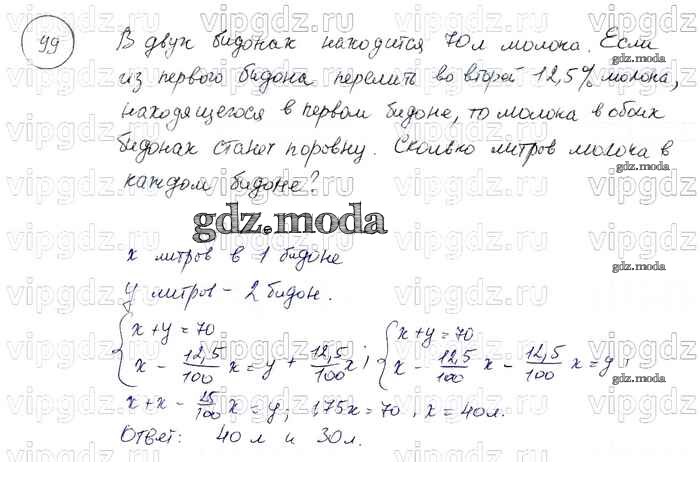 49
В двух бидонах находится 70 л молока. Если
из первого бидона перелить во второй 12,5% молока,
находящегося в первом бидоне, то молока в обоих
бидонах станет поровну. Сколько литров молока в
каждом бидоне?
gdz.moda
x литров в 1 бидоне
y литров - 2 бидон.
{ x + y = 70
x - 12,5/100 x = y + 12,5/100 x ;
{ x + y = 70
x - 12,5/100 x - 12,5/100 x = y ;
x + x - 25/100 x = y ; 1,75x = 70 , x = 40 л.
Ответ: 40 л и 30 л.